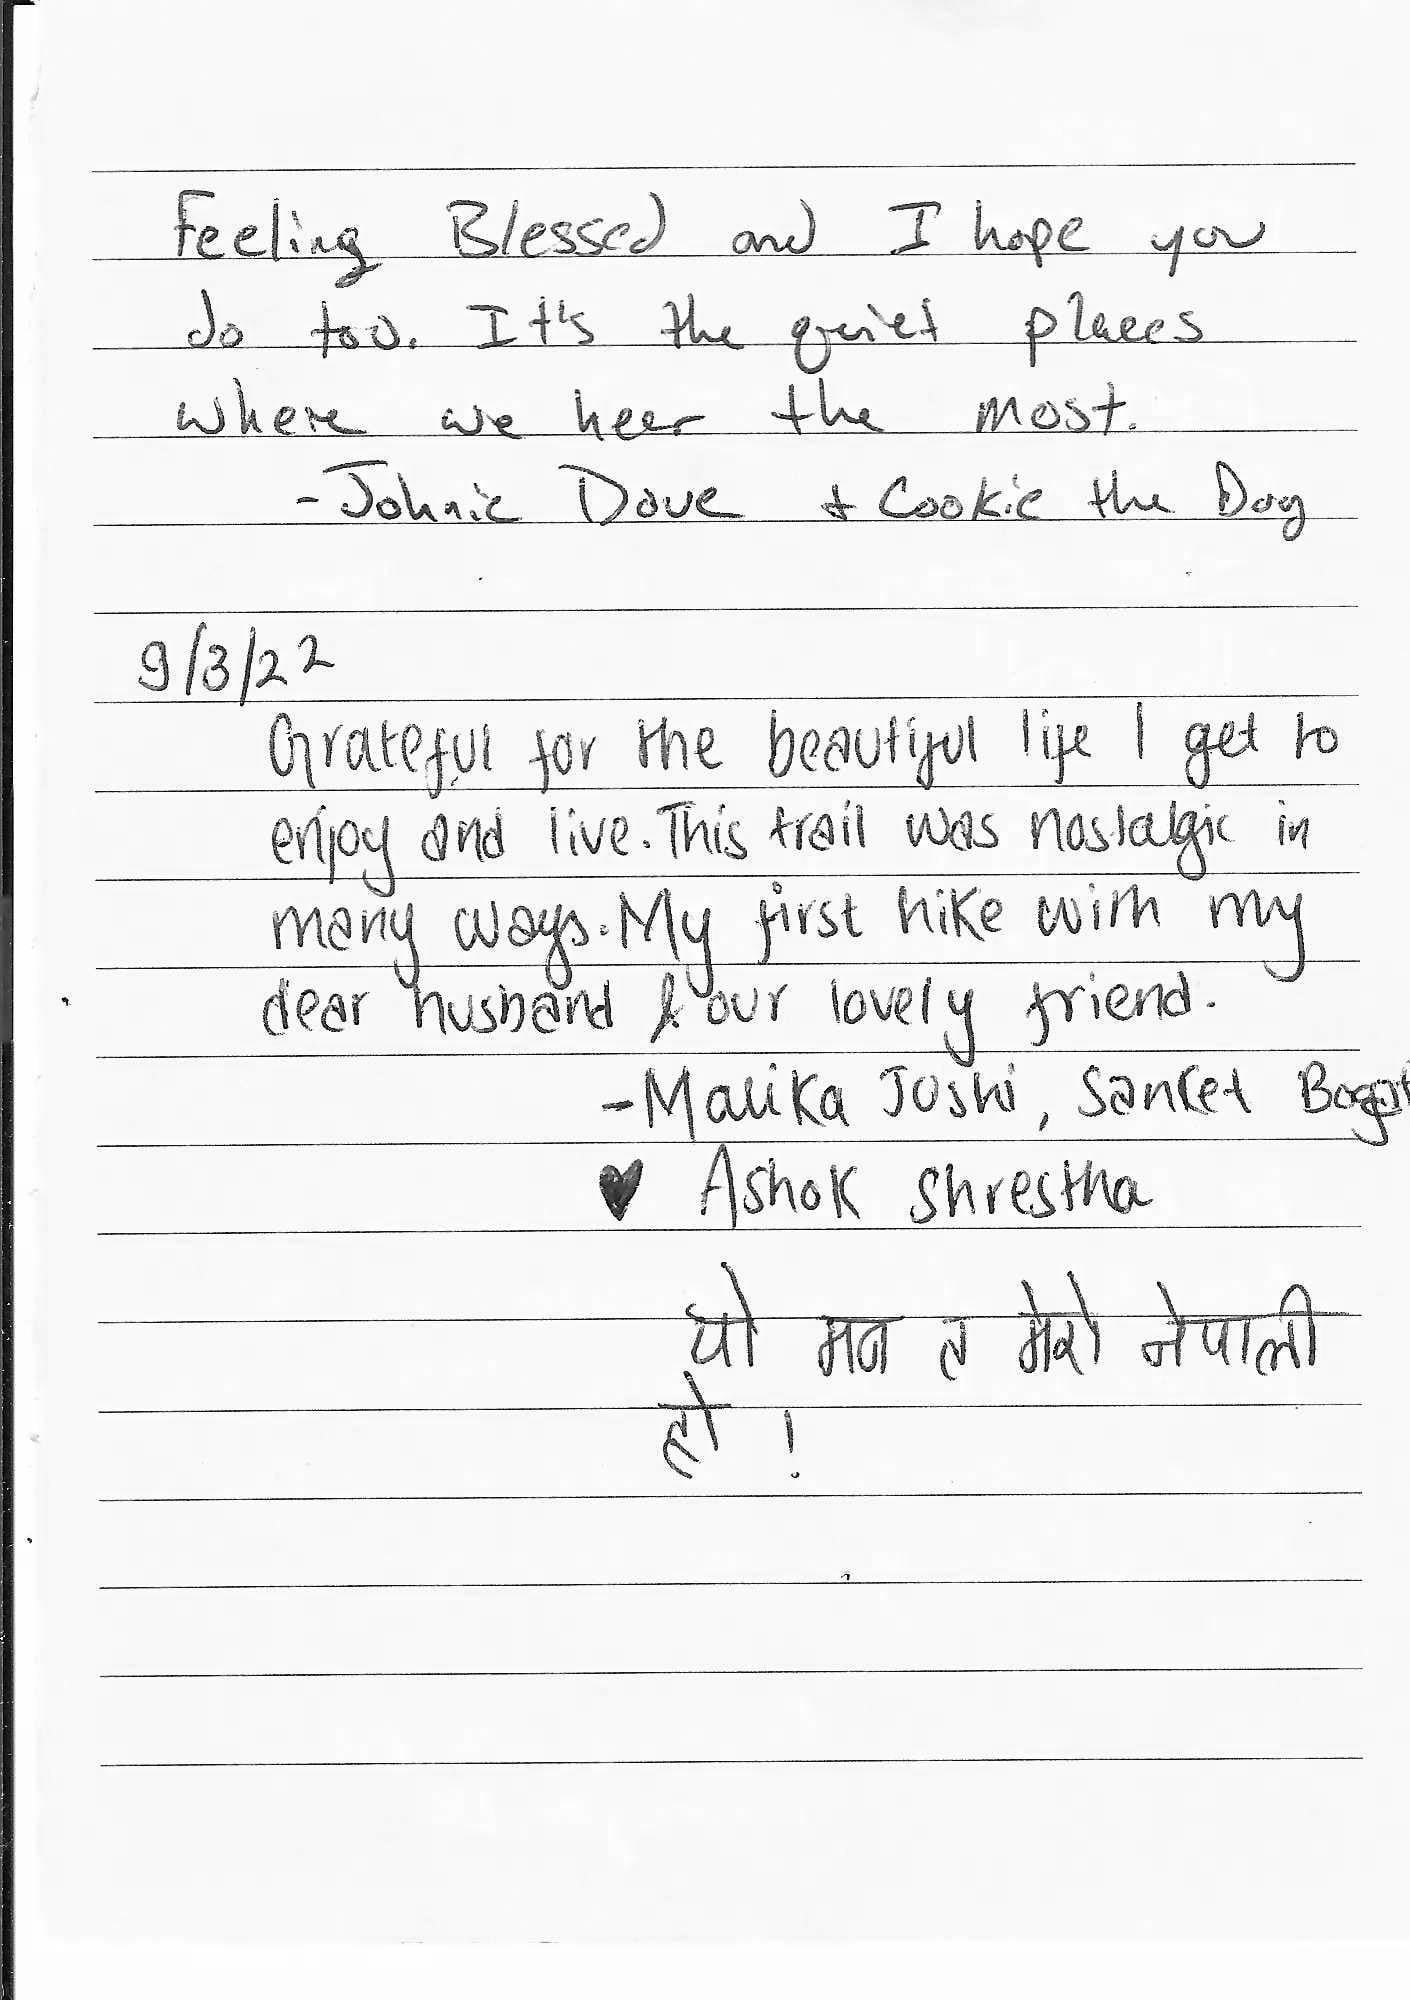 Feeling Blessed and I hope you
do too. It's the quiet places
where we hear the most.
- Johnie Dove + Cookie the Dog
9/3/22
Grateful for the beautiful life I get to
enjoy and live. This trail was nostalgic in
many ways. My first hike with my
dear husband & our lovely friend.
- Malika Joshi, Sanket
♥ Ashok Shrestha
यो मन त मेरो नेपाली
हो !